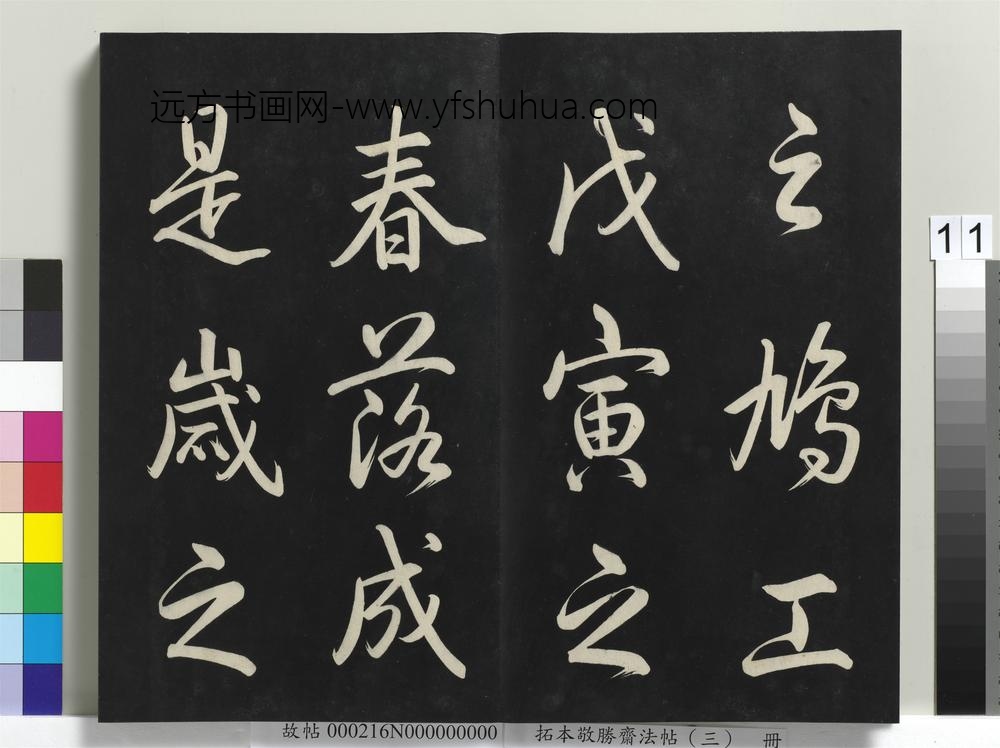 远方书画网-www.yfshuhua.com
云鳩工
戊寅之
春落成
是歲之
11
故帖 000216N000000000 拓本敬勝齋法帖(三) 冊